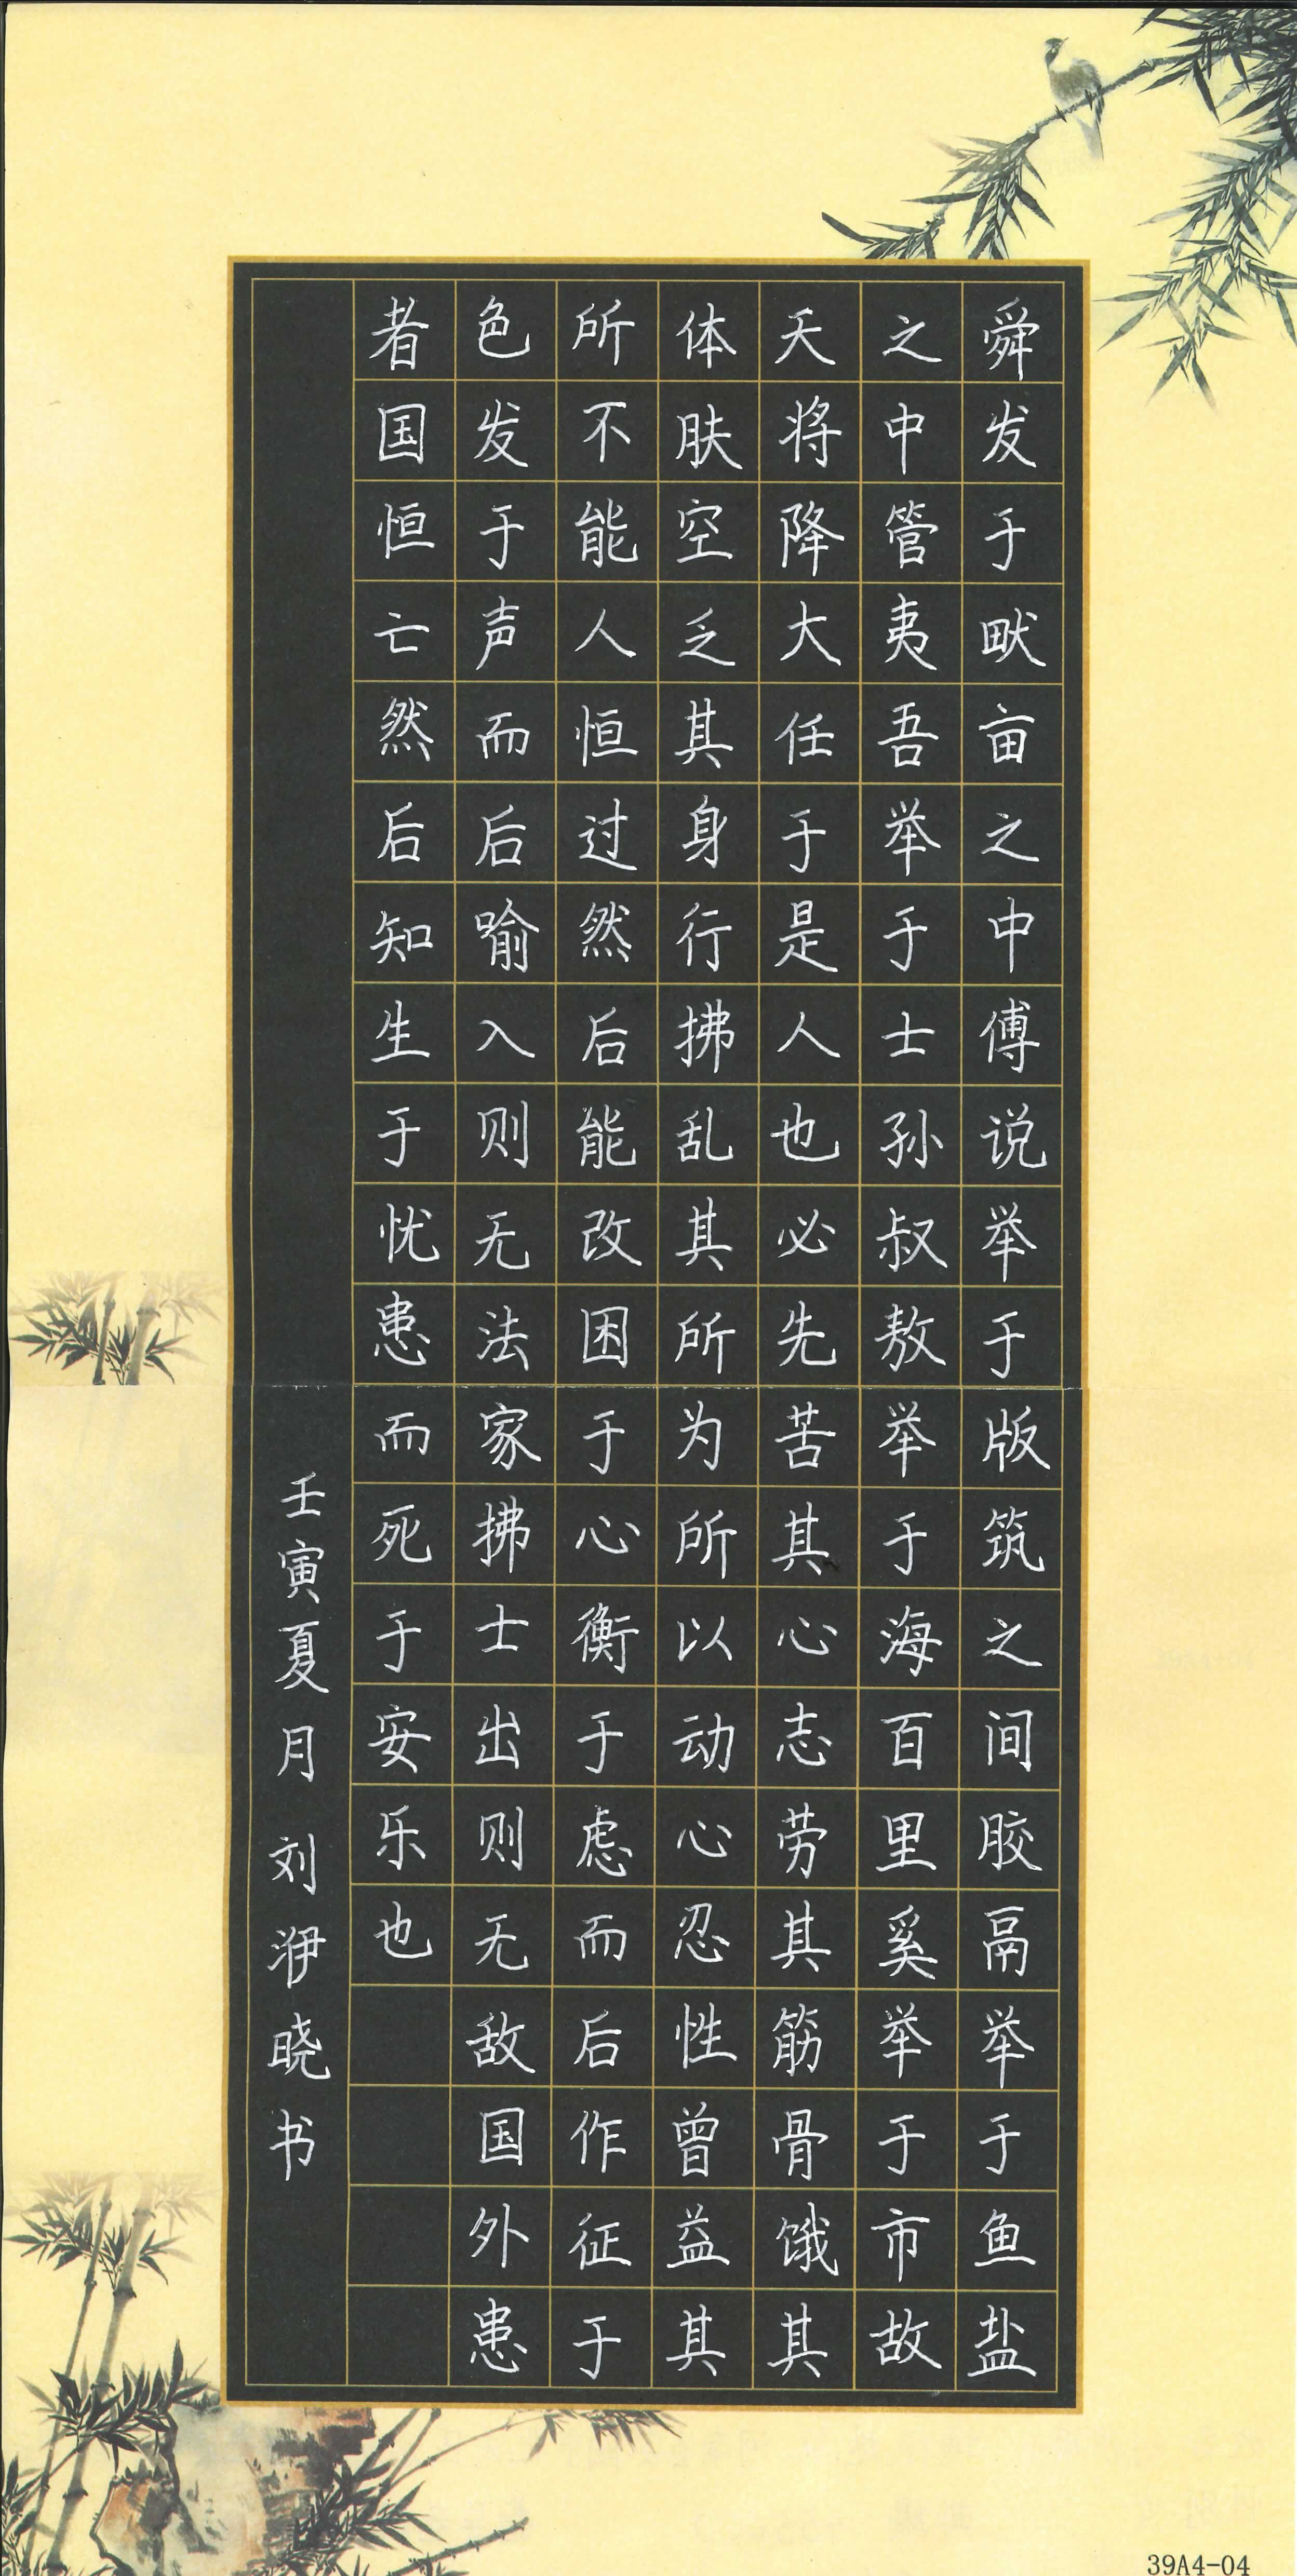 舜发于畎亩之中傅说举于版筑之间胶鬲举于鱼盐
之中管夷吾举于士孙叔敖举于海百里奚举于市故
天将降大任于是人也必先苦其心志劳其筋骨饿其
体肤空乏其身行拂乱其所为所以动心忍性曾益其
所不能人恒过然后能改困于心衡于虑而后作征于
色发于声而后喻入则无法家拂士出则无敌国外患
者国恒亡然后知生于忧患而死于安乐也
壬寅夏月 刘洢晓书
39A4-04